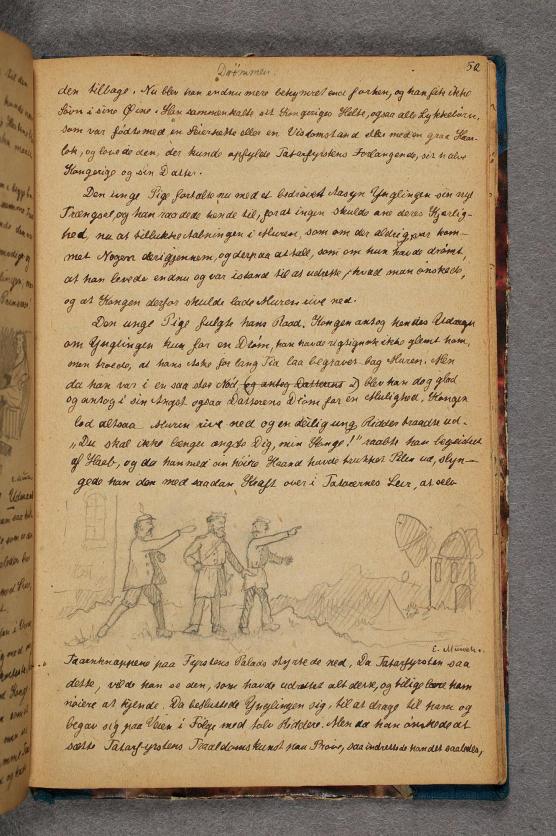 Drømmen.
52
den tilbage. Nu blev han endnu mere bekymret end forhen, og han fik ikke
Søvn i sine Øine. Han sammenkaldte sit Kongeriges Helte, ogsaa alle Lykkebørn,
som var født med en Seierhette eller en Visdomstand eller med en graa Haar-
lok, og lovede den, der kunde opfylde Tatarfyrstens Forlangende, sit halve
Kongerige og sin Datter.
Den unge Pige fortalte nu med et bedrøvet Aasyn Ynglingen sin nye
Trængsel, og han raadede hende til, for at ingen skulde ane deres Kjærlig-
hed, nu at tillukke Aabningen i Muren, som om der aldrig var kom-
met Nogen derigjennem, og derpaa at tale, som om hun havde drømt,
at han levede endnu og var istand til at udrette, hvad man ønskede,
og at Kongen derfor skulde lade Muren rive ned.
Den unge Pige fulgte hans Raad. Kongen antog hendes Udsagn
om Ynglingen kun for en Drøm, han havde vistnok ikke glemt ham,
men troede, at hans Aske for lang Tid laa begravet bag Muren. Men
da han var i en saa stor Nød (og antog Datterens D) blev han dog glad
og antog i sin Angst ogsaa Datterens Drøm for en Mulighed. Kongen
lod altsaa Muren rive ned og en deilig ung Ridder traadte ud.
"Du skal ikke længer ængste Dig, min Konge!" raabte han begeistret
af Haab, og da han med sin høire Haand havde trukket Pilen ud, slyn-
gede han den med saadan Kraft over i Tatarernes Leir, at selv
E. Munch.
Taarnknappene paa Fyrstens Palads styrtede ned. Da Tatarfyrsten saa
dette, vilde han se den, som havde udrettet alt dette, og tillige lære ham
nøiere at kjende. Da besluttede Ynglingen sig til at drage til ham og
begav sig paa Veien i Følge med tolv Riddere. Men da han ønskede at
sætte Tatarfyrstens Trolddomskunst paa Prøve, saa indrettede han det saaledes,